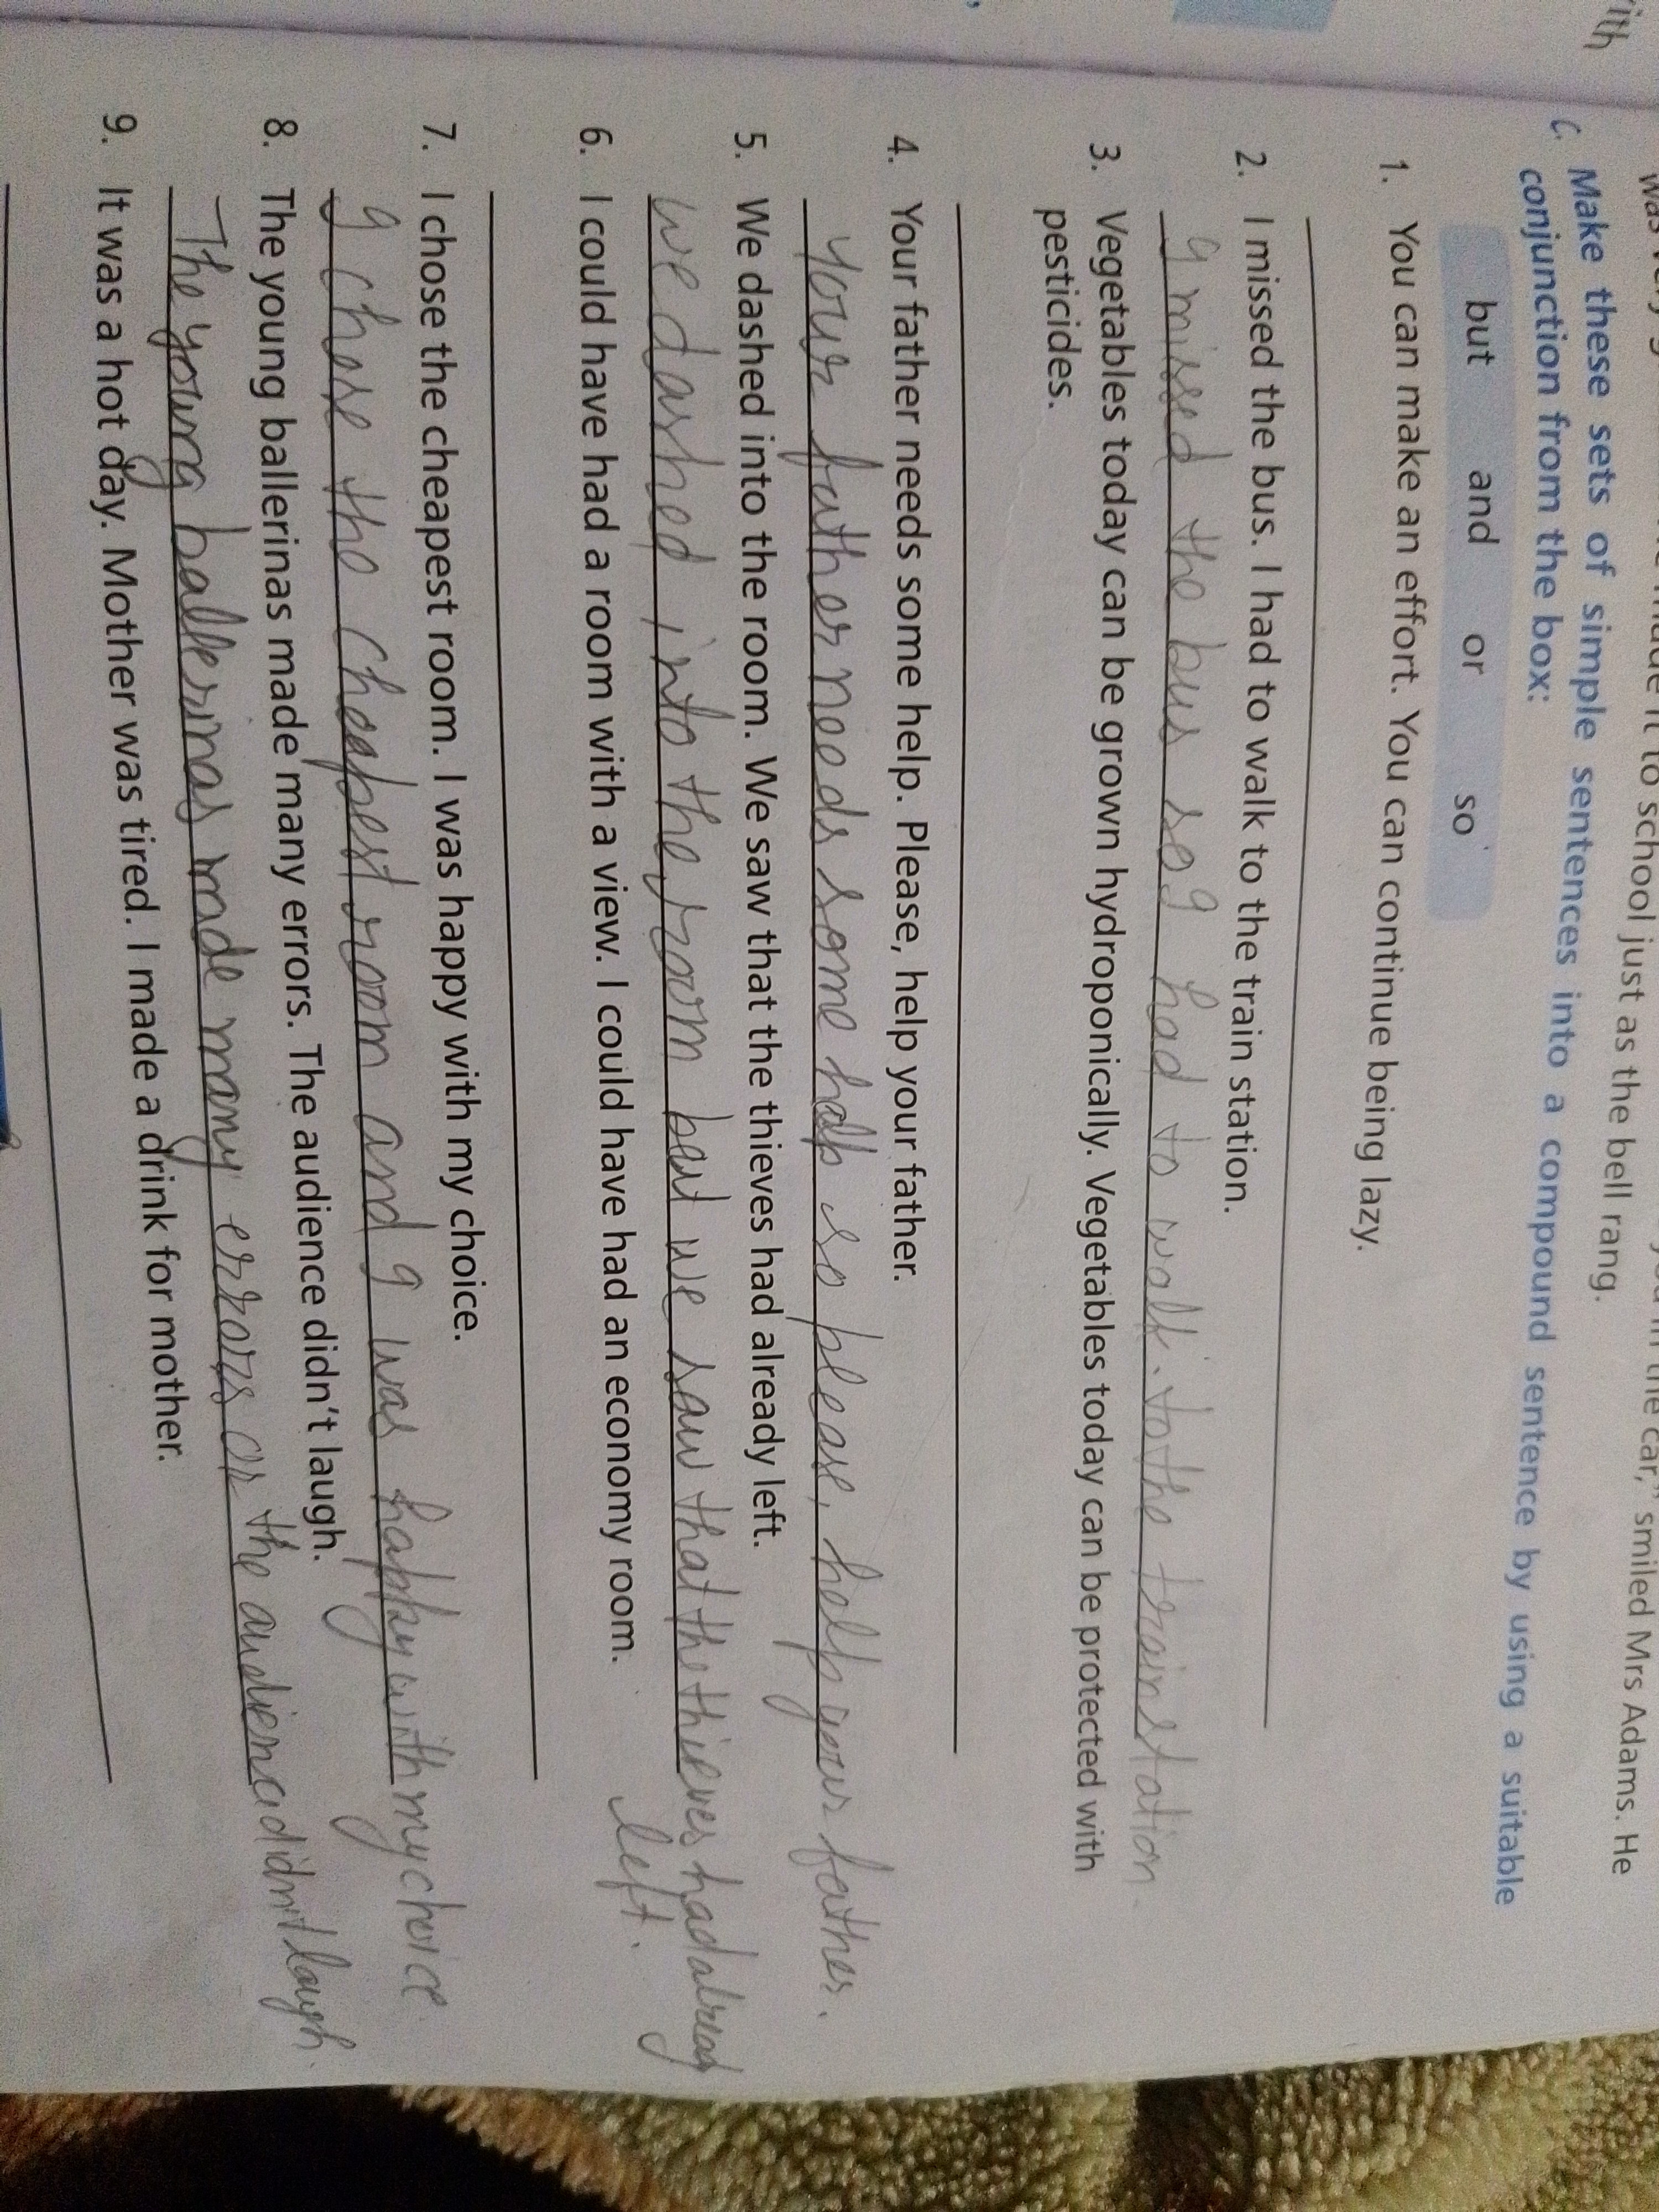 with
school just as the bell rang.
the car," smiled Mrs Adams. He
C. Make these sets of simple sentences into a compound sentence by using a suitable
conjunction from the box:
but and or so
1. You can make an effort. You can continue being lazy.
2. I missed the bus. I had to walk to the train station.
I missed the bus so I had to walk. to the train station.
3. Vegetables today can be grown hydroponically. Vegetables today can be protected with
pesticides.
4. Your father needs some help. Please, help your father.
your father needs some help so please, help your father.
5. We dashed into the room. We saw that the thieves had already left.
we dashed into the room but we saw that the thieves had alread
left.
6. I could have had a room with a view. I could have had an economy room.
7. I chose the cheapest room. I was happy with my choice.
I chose the cheapest room and I was happy with my choice.
8. The young ballerinas made many errors. The audience didn't laugh.
The young ballerinas made many errors or the didn't laugh.
9. It was a hot day. Mother was tired. I made a drink for mother.